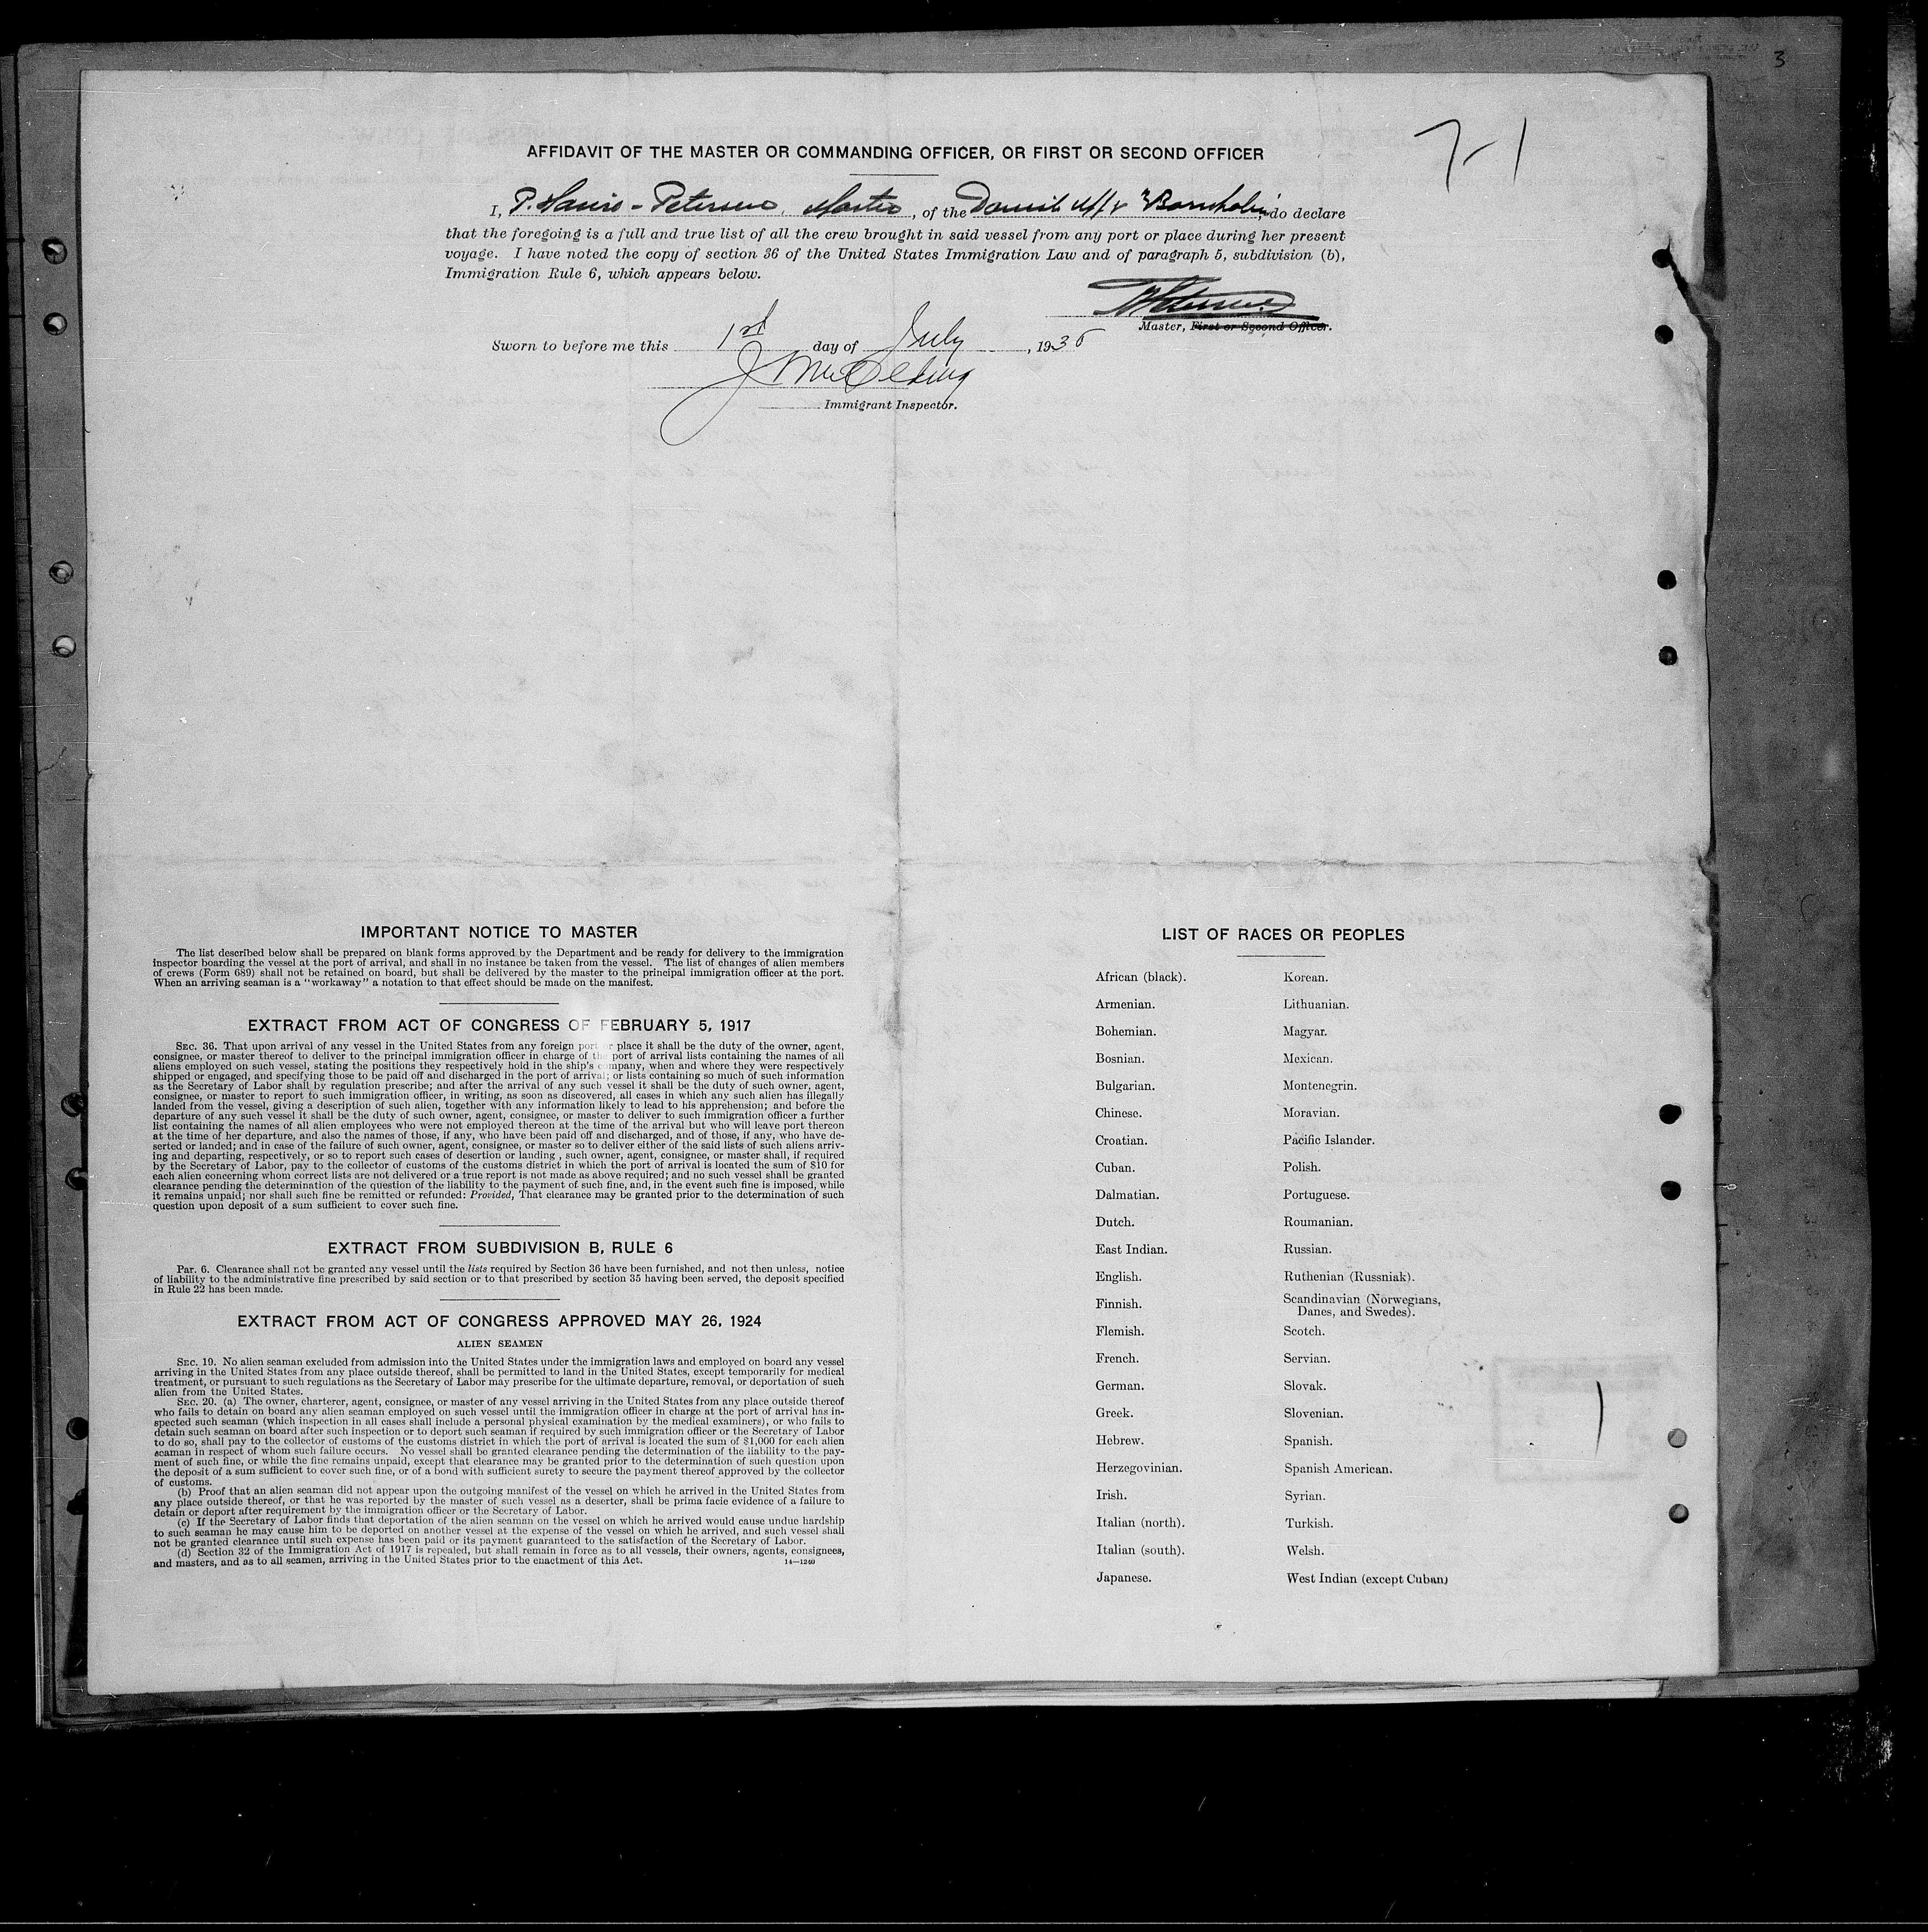 3
7-1
AFFIDAVIT OF THE MASTER OR COMMANDING OFFICER, OR FIRST OR SECOND OFFICER
I, P. - Petersen, Master, of the Danish M/S "Bornholm" do declare
that the foregoing is a full and true list of all the crew brought in said vessel from any port or place during her present
voyage. I have noted the copy of section 36 of the United States Immigration Law and of paragraph 5, subdivision (b),
Immigration Rule 6, which appears below.
Master, First or Second Officer.
Sworn to before me this 1st day of July, 193
Immigrant Inspector.
IMPORTANT NOTICE TO MASTER
The list described below shall be prepared on blank forms approved by the Department and be ready for delivery to the immigration
inspector boarding the vessel at the port of arrival, and shall in no instance be taken from the vessel. The list of changes of alien members
of crews (Form 689) shall not be retained on board, but shall be delivered by the master to the principal immigration officer at the port.
When an arriving seaman is a "workaway" a notation to that effect should be made on the manifest.
EXTRACT FROM ACT OF CONGRESS OF FEBRUARY 5, 1917
SEC. 36. That upon arrival of any vessel in the United States from any foreign port or place it shall be the duty of the owner, agent,
consignee, or master thereof to deliver to the principal immigration officer in charge of the port of arrival lists containing the names of all
aliens employed on such vessel, stating the positions they respectively hold in the ship's company, when and where they were respectively
shipped or engaged, and specifying those to be paid off and discharged in the port of arrival; or lists containing so much of such information
as the Secretary of Labor shall by regulation prescribe; and after the arrival of any such vessel it shall be the duty of such owner, agent,
consignee, or master to report to such immigration officer, in writing, as soon as discovered, all cases in which any such alien has illegally
landed from the vessel, giving a description of such alien, together with any information likely to lead to his apprehension; and before the
departure of any such vessel it shall be the duty of such owner, agent, consignee, or master to deliver to such immigration officer a further
list containing the names of all alien employees who were not employed thereon at the time of the arrival but who will leave port thereon
at the time of her departure, and also the names of those, if any, who have been paid off and discharged, and of those, if any, who have de-
serted or landed; and in case of the failure of such owner, agent, consignee, or master so to deliver either of the said lists of such aliens arriv-
ing and departing, respectively, or so to report such cases of desertion or landing , such owner, agent, consignee, or master shall, if required
by the Secretary of Labor, pay to the collector of customs of the customs district in which the port of arrival is located the sum of $10 for
each alien concerning whom correct lists are not delivered or a true report is not made as above required; and no such vessel shall be granted
clearance pending the determination of the question of the liability to the payment of such fine, and, in the event such fine is imposed, while
it remains unpaid; nor shall such fine be remitted or refunded: Provided, That clearance may be granted prior to the determination of such
question upon deposit of a sum sufficient to cover such fine.
EXTRACT FROM SUBDIVISION B, RULE 6
Par. 6. Clearance shall not be granted any vessel until the lists required by Section 36 have been furnished, and not then unless, notice
of liability to the administrative fine prescribed by said section or to that prescribed by section 35 having been served, the deposit specified
in Rule 22 has been made.
EXTRACT FROM ACT OF CONGRESS APPROVED MAY 26, 1924
ALIEN SEAMEN
SEC. 19. No alien seaman excluded from admission into the United States under the immigration laws and employed on board any vessel
arriving in the United States from any place outside thereof, shall be permitted to land in the United States, except temporarily for medical
treatment, or pursuant to such regulations as the Secretary of Labor may prescribe for the ultimate departure, removal, or deportation of such
alien from the United States.
SEC. 20. (a) The owner, charterer, agent, consignee, or master of any vessel arriving in the United States from any place outside thereof
who fails to detain on board any alien seaman employed on such vessel until the immigration officer in charge at the port of arrival has in-
spected such seaman (which inspection in all cases shall include a personal physical examination by the medical examiners), or who fails to
detain such seaman on board after such inspection or to deport such seaman if required by such immigration officer or the Secretary of Labor
to do so, shall pay to the collector of customs of the customs district in which the port of arrival is located the sum of $1,000 for each alien
seaman in respect of whom such failure occurs. No vessel shall be granted clearance pending the determination of the liability to the pay-
ment of such fine, or while the fine remains unpaid, except that clearance may be granted prior to the determination of such question upon
the deposit of a sum sufficient to cover such fine, or of a bond with sufficient surety to secure the payment thereof approved by the collector
of customs.
(b) Proof that an alien seaman did not appear upon the outgoing manifest of the vessel on which he arrived in the United States from
any place outside thereof, or that he was reported by the master of such vessel as a deserter, shall be prima facie evidence of a failure to
detain or deport after requirement by the immigration officer or the Secretary of Labor.
(c) If the Secretary of Labor finds that deportation of the alien seaman on the vessel on which he arrived would cause undue hardship
to such seaman he may cause him to be deported on another vessel at the expense of the vessel on which he arrived, and such vessel shall
not be granted clearance until such expense has been paid or its payment guaranteed to the satisfaction of the Secretary of Labor.
(d) Section 32 of the Immigration Act of 1917 is repealed, but shall remain in force as to all vessels, their owners, agents, consignees,
and masters, and as to all seamen, arriving in the United States prior to the enactment of this Act. 14—1240
LIST OF RACES OR PEOPLES
African (black).
Armenian.
Bohemian.
Bosnian.
Bulgarian.
Chinese.
Croatian.
Cuban.
Dalmatian.
Dutch.
East Indian.
English.
Finnish.
Flemish.
French.
German.
Greek.
Hebrew.
Herzegovinian.
Irish.
Italian (north).
Italian (south).
Japanese.
Korean.
Lithuanian.
Magyar.
Mexican.
Montenegrin.
Moravian.
Pacific Islander.
Polish.
Portuguese.
Roumanian.
Russian.
Ruthenian (Russniak).
Scandinavian (Norwegians,
Danes, and Swedes).
Scotch.
Servian.
Slovak.
Slovenian.
Spanish.
Spanish American.
Syrian.
Turkish.
Welsh.
West Indian (except Cuban)